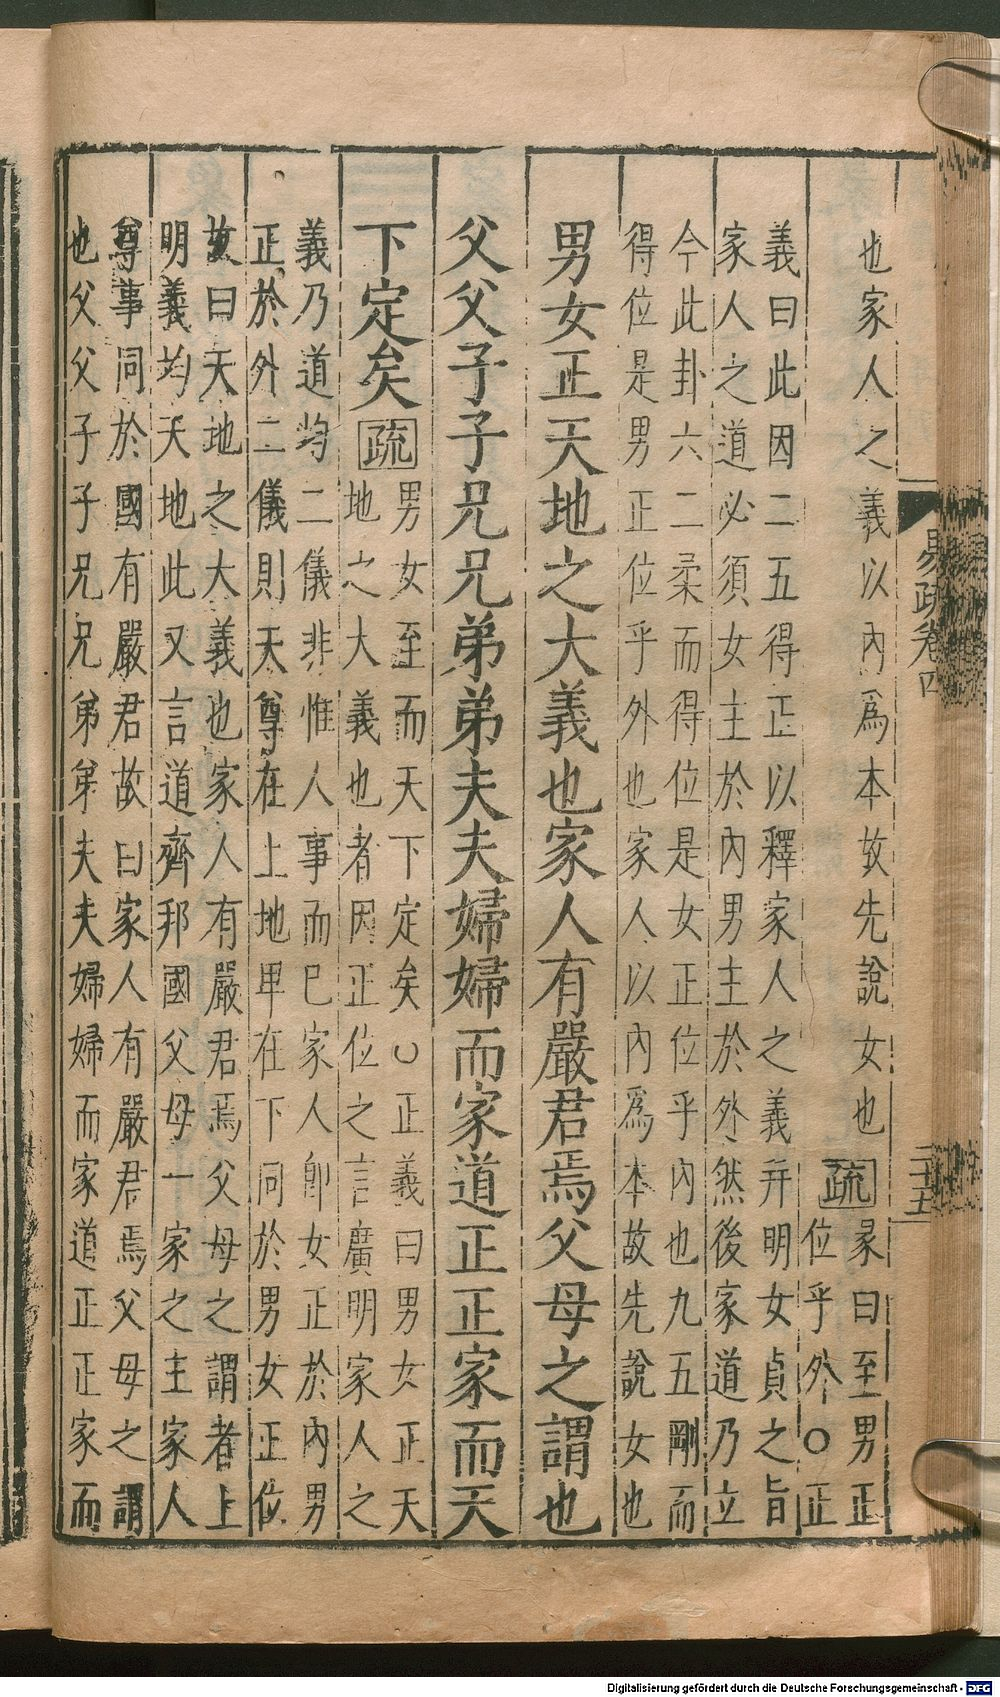 也家人之義以內爲本故先說女也疏彖曰至男正
位乎外〇正
義曰此因二五得正以釋家人之義并明女貞之旨
家人之道必須女主於內男主於外然後家道乃立
今此卦六二柔而得位是女正位乎內也九五剛而
得位是男正位乎外也家人以內爲本故先說女也
男女正天地之大義也家人有嚴君焉父母之謂也
父父子子兄兄弟弟夫夫婦婦而家道正正家而天
下定矣疏男女至而天下定矣〇正義曰男女正天
地之大義也者因正位之言廣明家人之
義乃道均二儀非惟人事而已家人卽女正於內男
正於外二儀則天尊在上地卑在下同於男女正位
故曰天地之大義也家人有嚴君焉父母之謂者上
明義均天地此又言道齊邦國父母一家之主家人
尊事同於國有嚴君故曰家人有嚴君焉父母之謂
也父父子子兄兄弟弟夫夫婦婦而家道正正家而
易疏卷四
二十五
Digitalisierung gefördert durch die Deutsche Forschungsgemeinschaft - DFG